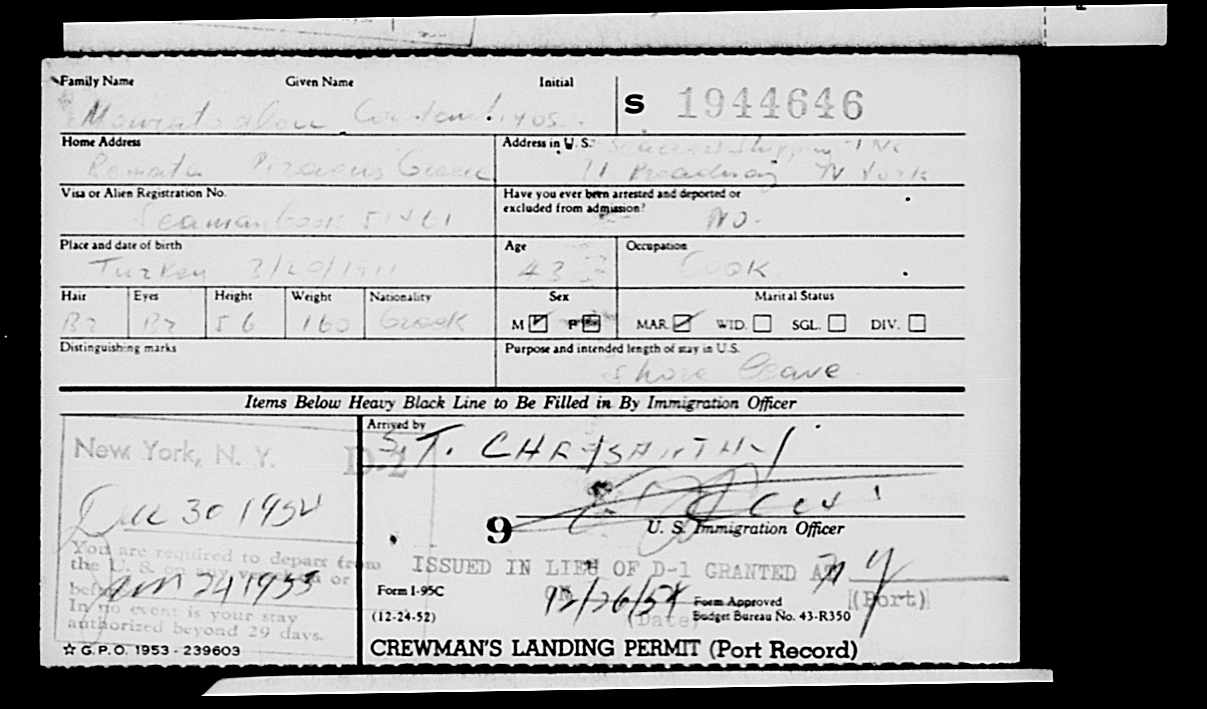 Family Name Given Name Initial
S 1944646
Home Address
Greece
Address in U. S.
Shipping Inc
11 Broadway N York
Visa or Alien Registration No.
Seaman book
Have you ever been arrested and deported or
excluded from admission?
NO.
Place and date of birth
Turkey
Age
43
Occupation
Cook
Hair Eyes Height Weight Nationality
Br Br 56 160 Greek
Sex
M F
Marital Status
MAR. WID. SGL. DIV.
Distinguishing marks
Purpose and intended length of stay in U.S.
Shore Leave
Items Below Heavy Black Line to Be Filled in By Immigration Officer
New York, N. Y.
D-1
Dec 30 1954
You are required to depart from
the U. S. on any vessel or
before
Jan 24 1955
In no event is your stay
authorized beyond 29 days.
☆ G.P.O. 1953 - 239603
Arrived by
ST. CHRYSANTHY
9
U. S. Immigration Officer
ISSUED IN LIEU OF D-1 GRANTED AT N Y
(Port)
ON 12/26/54
(Date)
Form I-95C
(12-24-52)
Form Approved
Budget Bureau No. 43-R350
CREWMAN'S LANDING PERMIT (Port Record)